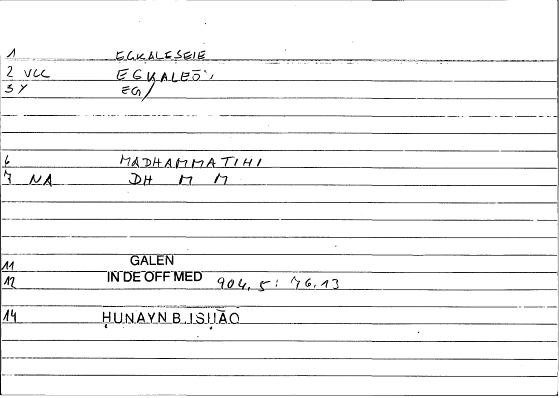 1 EGKALESEIE
2 VCC EGKALEŌ
3 Y EG/
6 MADHAMMATIHI
7 NA DH M M
11 GALEN
12 IN DE OFF MED 904,5: 76.13
14 ḤUNAYN B.ISḤĀQ